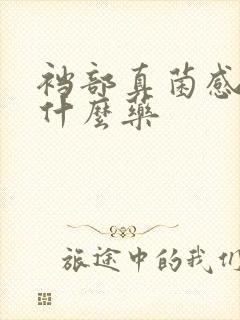 裆部真菌感
什麼藥
旅途中的我们